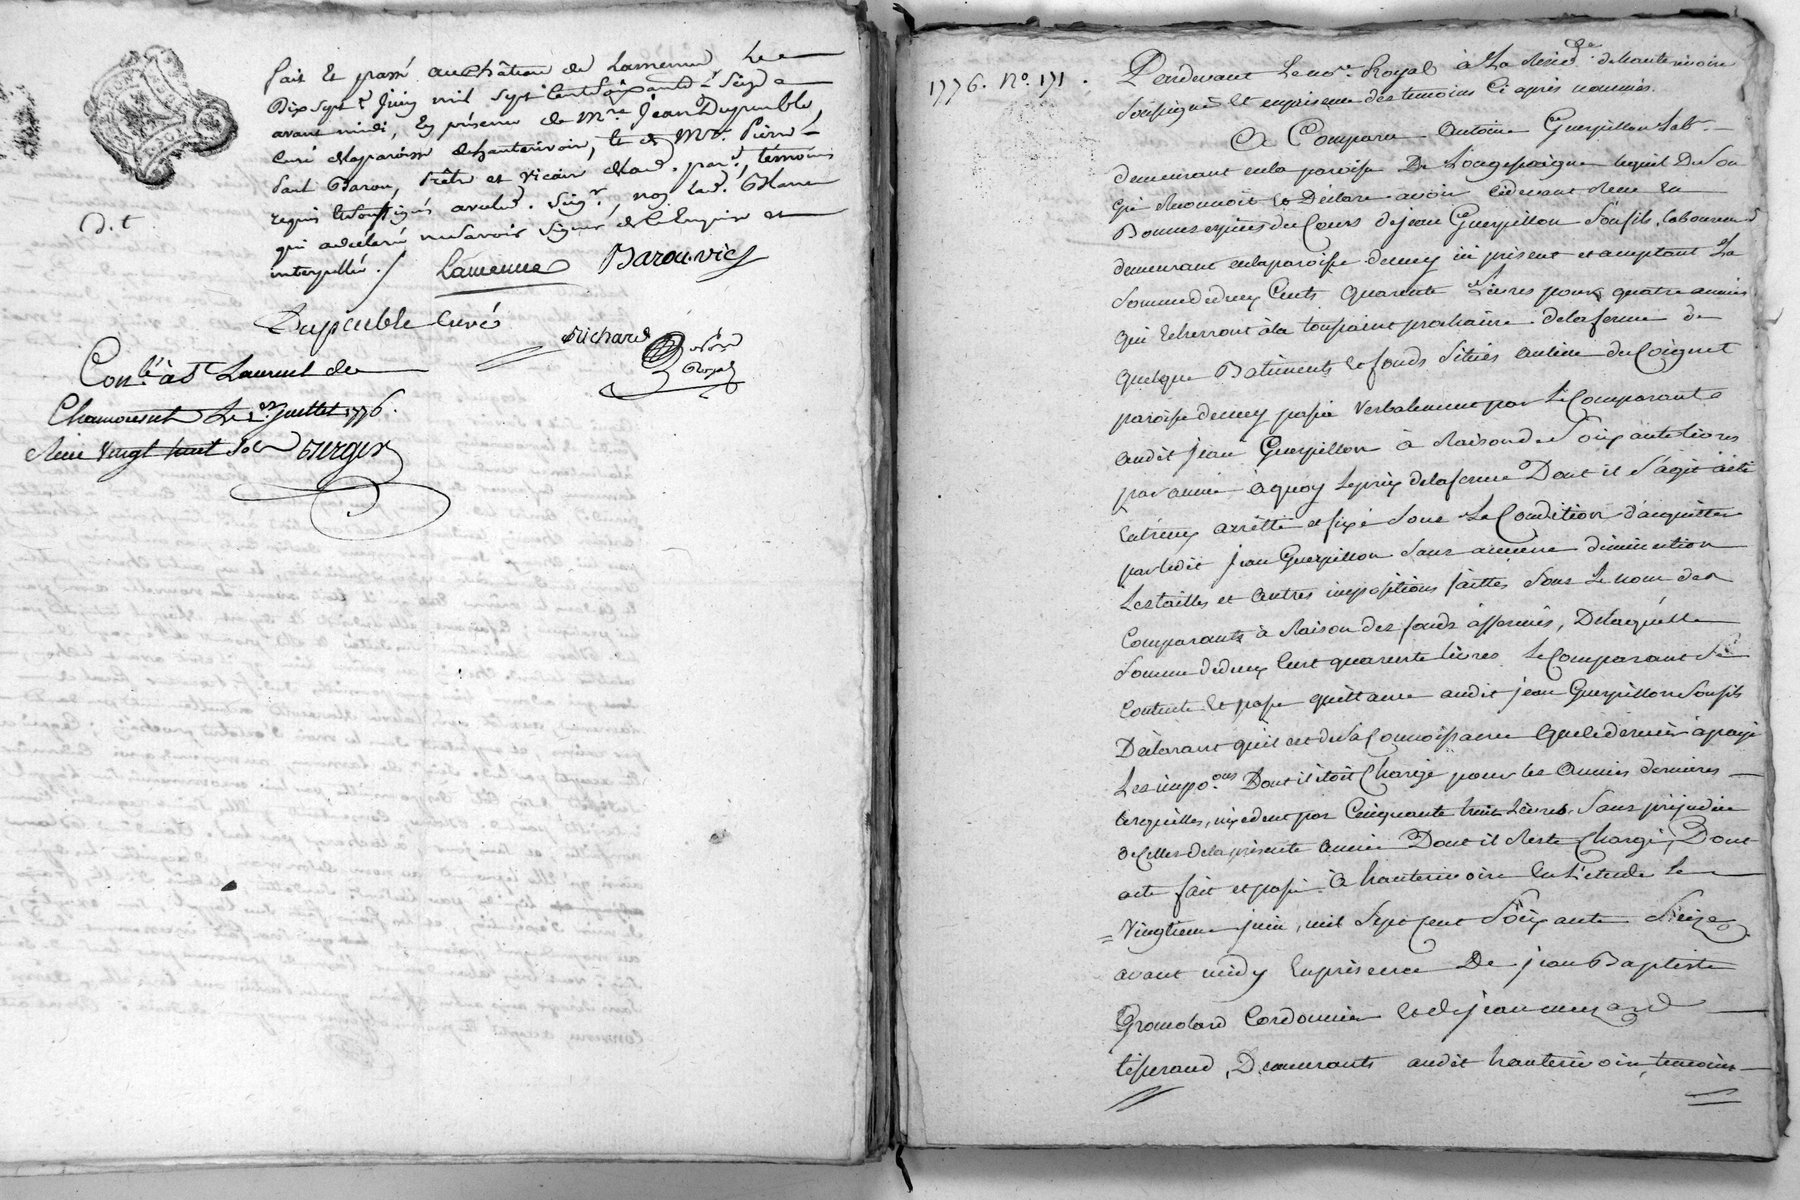 fait et passé au château de Lamenue Le
Dix sept.e Juin mil sept cent soixante Seize
avant midi, En présence de M.re Jean Dupeuble
curé de la paroisse d'hauterivoire, et de M.re Pierre
Paul Barou, Prêtre et Vicaire de lad. par.e, témoins
requis et soussignés avec led. Seig.r, non lad.
qui a déclaré ne savoir signer de ce Enquise et
interpellée. /. Lamenue Barou. vic
d. t
Dupeuble curé
Richard
No.re Royal
Con.lé à S.t Laurent de
Chamousset Le 1.er Juillet 1776.
Reçu Vingt huit sols
1776. N.o 171.
Pardevant Le no.re Royal à La Resid.ce de hauterivoire
Soussigné Et en presence des temoins Ci après nommés.
A Comparu Antoine Guerpillon Lab.r
demeurant en la paroisse De Longessaigne lequel De Son
gré Reconnoit et Déclare avoir cidevant Reçu En
Bonnes espèces du Cours de jean Guerpillon Son fils, laboureur
demeurant en la paroisse demey ici présent et acceptant La
Somme de deux Cents Quarante Livres pour quatre années
qui Echerront à la toussaint prochaine de la ferme de
quelque Batiments Et fonds Situés au lieu du Coignet
paroisse demeys passée Verbalement par Le Comparant
audit jean Guerpillon à Raison de Soixante livres
par année à quoy Le prix de la ferme Dont il S'agit a été
Entreux arrêtté et fixé Sous La Condition d'acquitter
par ledit Jean Guerpillon Sans aucune diminution
Les tailles et autres impositions faittes Sous Le nom des
Comparants à Raison des fonds affermés, De laquelle
Somme de deux Cent quarante livres Le Comparant Se
Contente Et passe quittance audit jean Guerpillon Son fils
Déclarant qu'il est de Sa Connoissance que le dernier à payé
Les impo.ons Dont il étoit Chargé pour les Années dernieres
lesquelles, excedent pas Cinquante huit Livres, Sans préjudice
de Celles de la présente année Dont il Reste Chargé, Dont
acte fait et passé à hauterivoire En L'étude Le
Vingtieme juin, mil Sept Cent Soixante Seize
avant midy En présence De jean Baptiste
Gromolard Cordonnier et de jean
tisserand, Demeurants audit hauterivoire, temoins